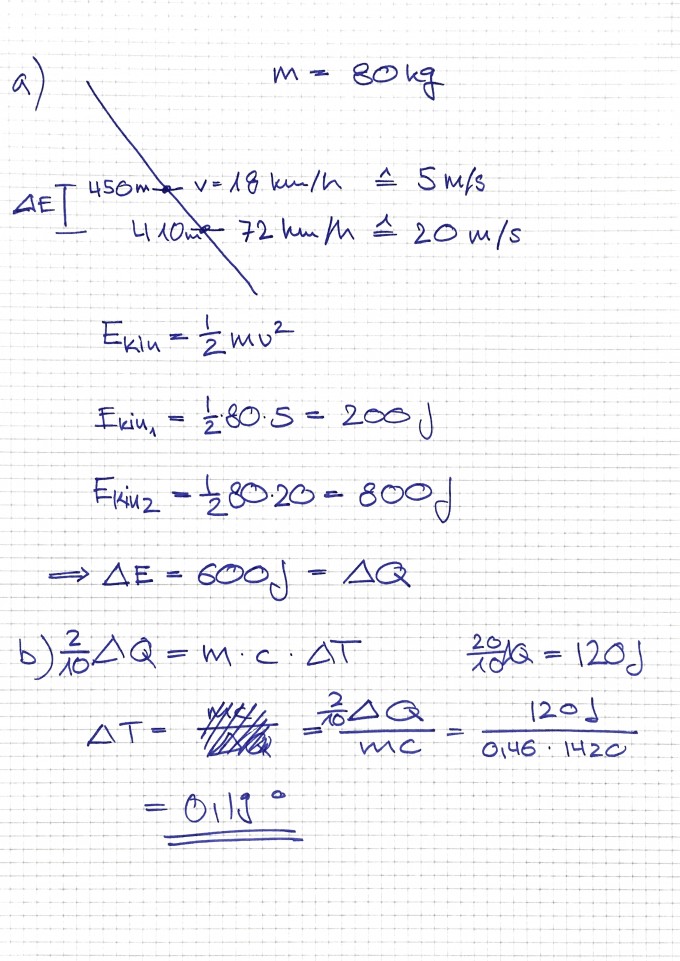 a) m = 80 kg
ΔE 450m v = 18 km/h ≙ 5 m/s
410m 72 km/h ≙ 20 m/s
Ekin = 1/2 mv²
Ekin₁ = 1/2·80·5 = 200 J
Ekin2 = 1/2 80·20 = 800 J
⇒ ΔE = 600 J = ΔQ
b) 2/10 ΔQ = m·c·ΔT 20/10 ΔQ = 120 J
ΔT = = 2/10 ΔQ / mc = 120 J / 0,46 · 1420
= 0,19°